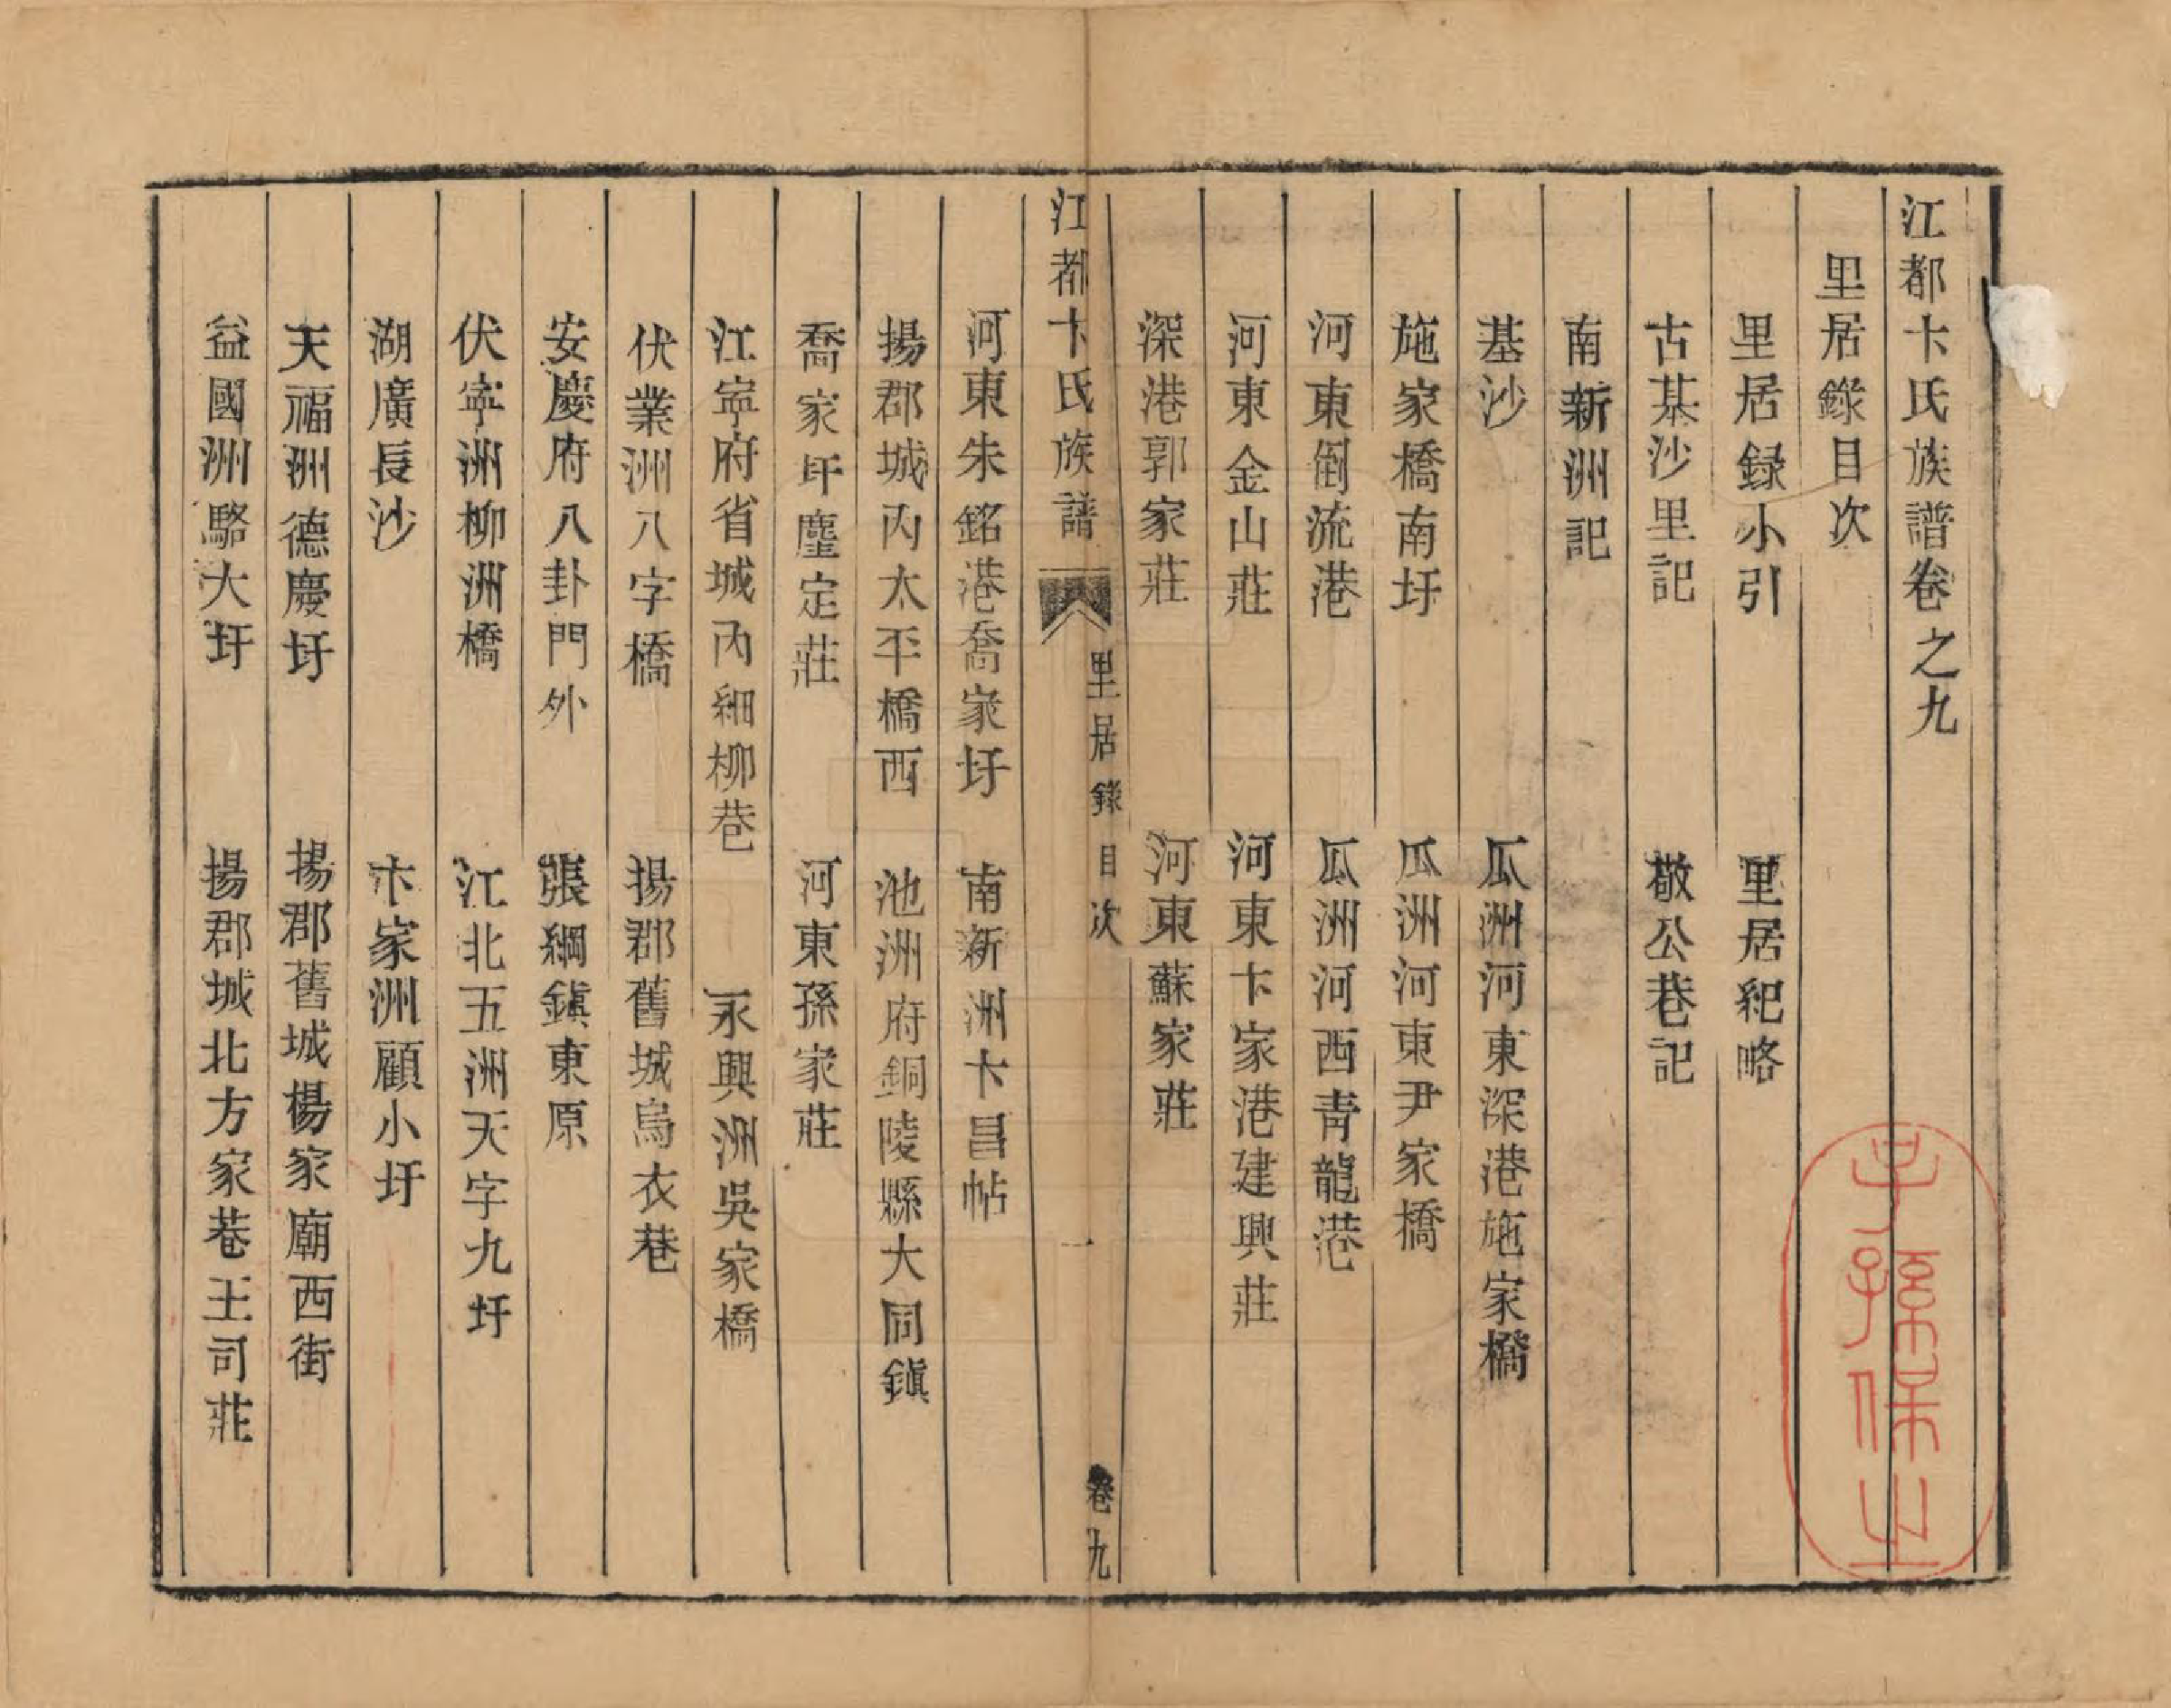 江都卞氏族譜卷之九
里居錄目次
里居録小引　里居紀略
古基沙里記　敬公巷記
南新洲記
基沙　瓜洲河東深港施家橋
施家橋南圩　瓜洲河東尹家橋
河東倒流港　瓜洲河西青龍港
河東金山莊　河東卞家港建興莊
深港郭家莊　河東蘇家莊
江都卞氏族譜　里居錄目次　一　卷九
河東朱銘港喬家圩　南新洲卞昌帖
揚郡城內太平橋西　池洲府銅陵縣大同鎮
喬家庄塵定莊　河東孫家莊
江寧府省城內細柳巷　永興洲吳家橋
伏業洲八字橋　揚郡舊城烏衣巷
安慶府八卦門外　張綱鎮東原
伏寧洲柳洲橋　江北五洲天字九圩
湖廣長沙　卞家洲顧小圩
天福洲德慶圩　揚郡舊城楊家廟西街
益國洲駱大圩　揚郡城北方家巷王司莊
子孫保之